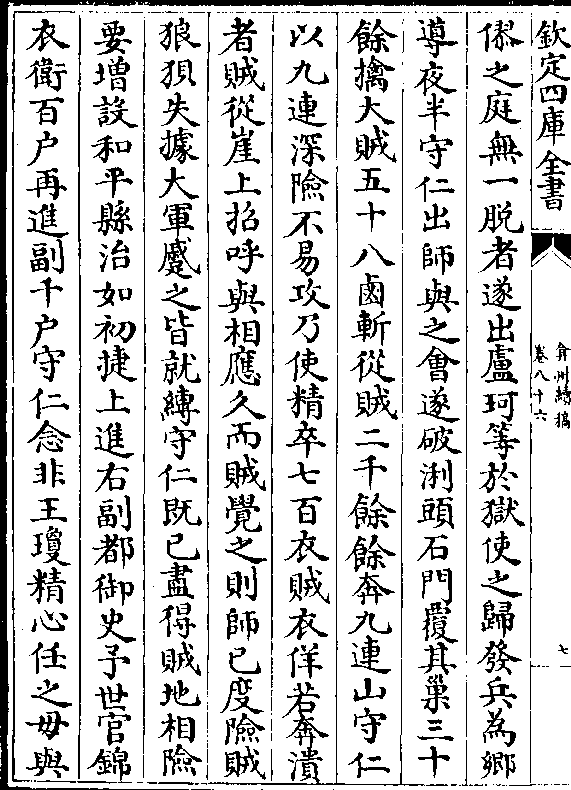 欽定四庫全書
弇州續稿
卷八十六
七
僇之庭無一脫者遂出盧珂等於獄使之歸發兵為鄉
導夜半守仁出師與之會遂破浰頭石門覆其巢三十
餘擒大賊五十八鹵斬從賊二千餘餘奔九連山守仁
以九連深險不易攻乃使精卒七百衣賊衣佯若奔潰
者賊從崖上招呼與相應久而賊覺之則師已度險賊
狼狽失據大軍蹙之皆就縛守仁既已盡得賊地相險
要增設和平縣治如初捷上進右副都御史予世官錦
衣衛百户再進副千户守仁念非王瓊精心任之毋與